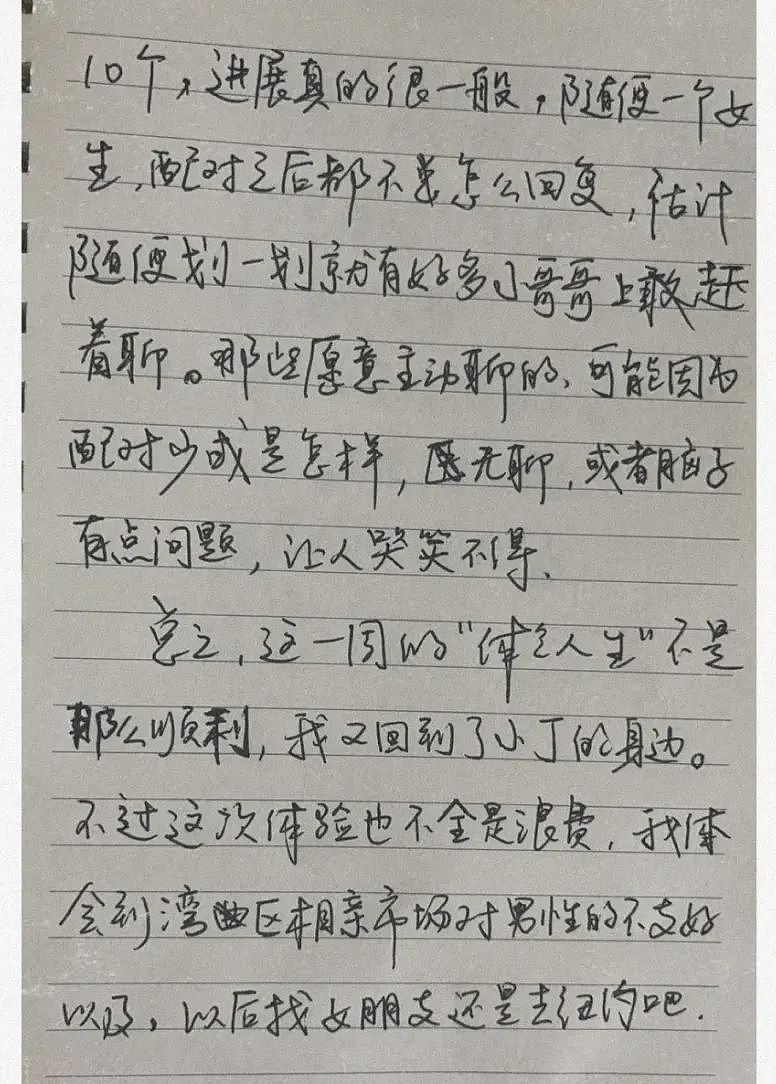 10个，进展真的很一般，随便一个女
生，配对之后都不怎么回复，估计
随便划一划就有好多小哥哥上赶
着聊。那些愿意主动聊的、可能因为
配对少或是怎样，无聊，或者脑子
有点问题，让人哭笑不得、
总之，这一周的“体验人生”不是
那么顺利，我又回到了小丁的身边。
不过这次体验也不全是浪费，我体
会到湾区相亲市场对男性的不友好
以及，以后找女朋友还是去纽约吧.